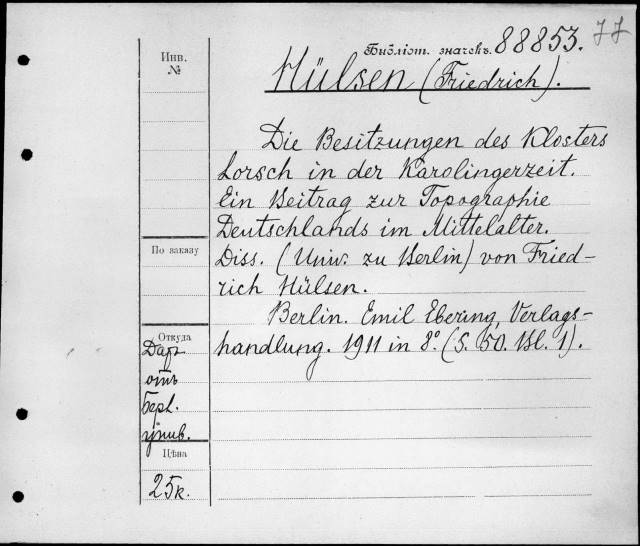 Библіот. значекъ. 88853. 77
Hülsen (Friedrich).
Инв.
№
Die Besitzungen des Klosters
Lorsch in der Karolingerzeit.
Ein Beitrag zur Topographie
Deutschlands im Mittelalter.
По заказу
Diss. (Univ. zu Berlin) von Fried-
rich Hülsen.
Berlin. Emil Ebering, Verlags-
handlung. 1911 in 8º. (S. 50. Bl. 1).
Откуда
Даръ
отъ
Берл.
унив.
Цѣна
25к.